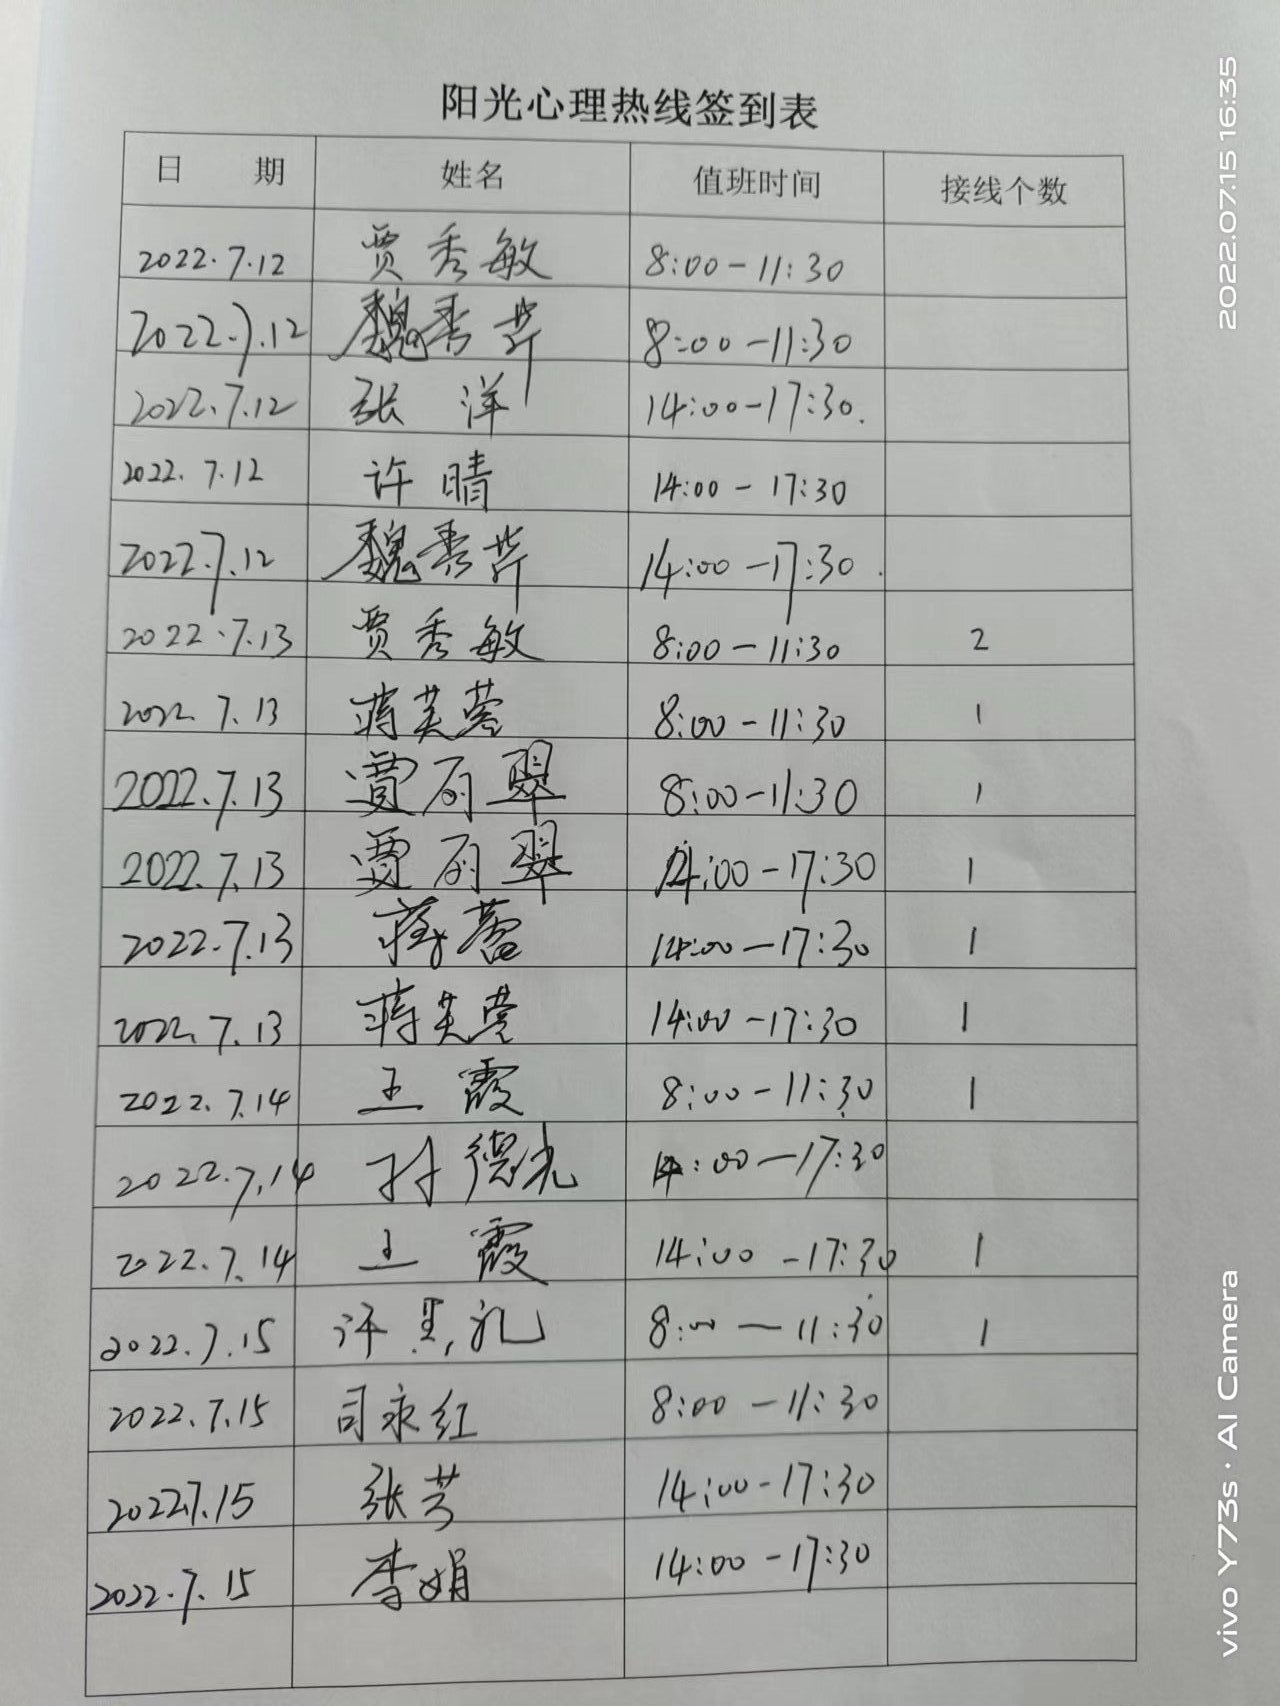 阳光心理热线签到表
日 期 姓名 值班时间 接线个数
2022.7.12 贾秀敏 8:00-11:30
2022.7.12 魏秀芹 8:00-11:30
2022.7.12 张 洋 14:00-17:30.
2022.7.12 许晴 14:00-17:30
2022.7.12 魏秀芹 14:00-17:30.
2022.7.13 贾秀敏 8:00-11:30 2
2022.7.13 蒋芙蓉 8:00-11:30 1
2022.7.13 贾丽翠 8:00-11:30 1
2022.7.13 贾丽翠 14:00-17:30 1
2022.7.13 蒋蕾 14:00-17:30 1
2022.7.13 蒋芙蓉 14:00-17:30 1
2022.7.14 王霞 8:00-11:30 1
2022.7.14 孙德光 14:00-17:30
2022.7.14 王霞 14:00-17:30 1
2022.7.15 许 礼 8:00-11:30 1
2022.7.15 司永红 8:00-11:30
2022.7.15 张芳 14:00-17:30
2022.7.15 李娟 14:00-17:30
2022.07.15 16:35
vivo Y73s · AI Camera